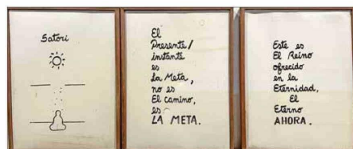 Satori
El
Presente/
instante
es
La Meta,
no es
El camino,
es
LA META.
Este es
El Reino
ofrecido
en la
Eternidad,
El
Eterno
AHORA.